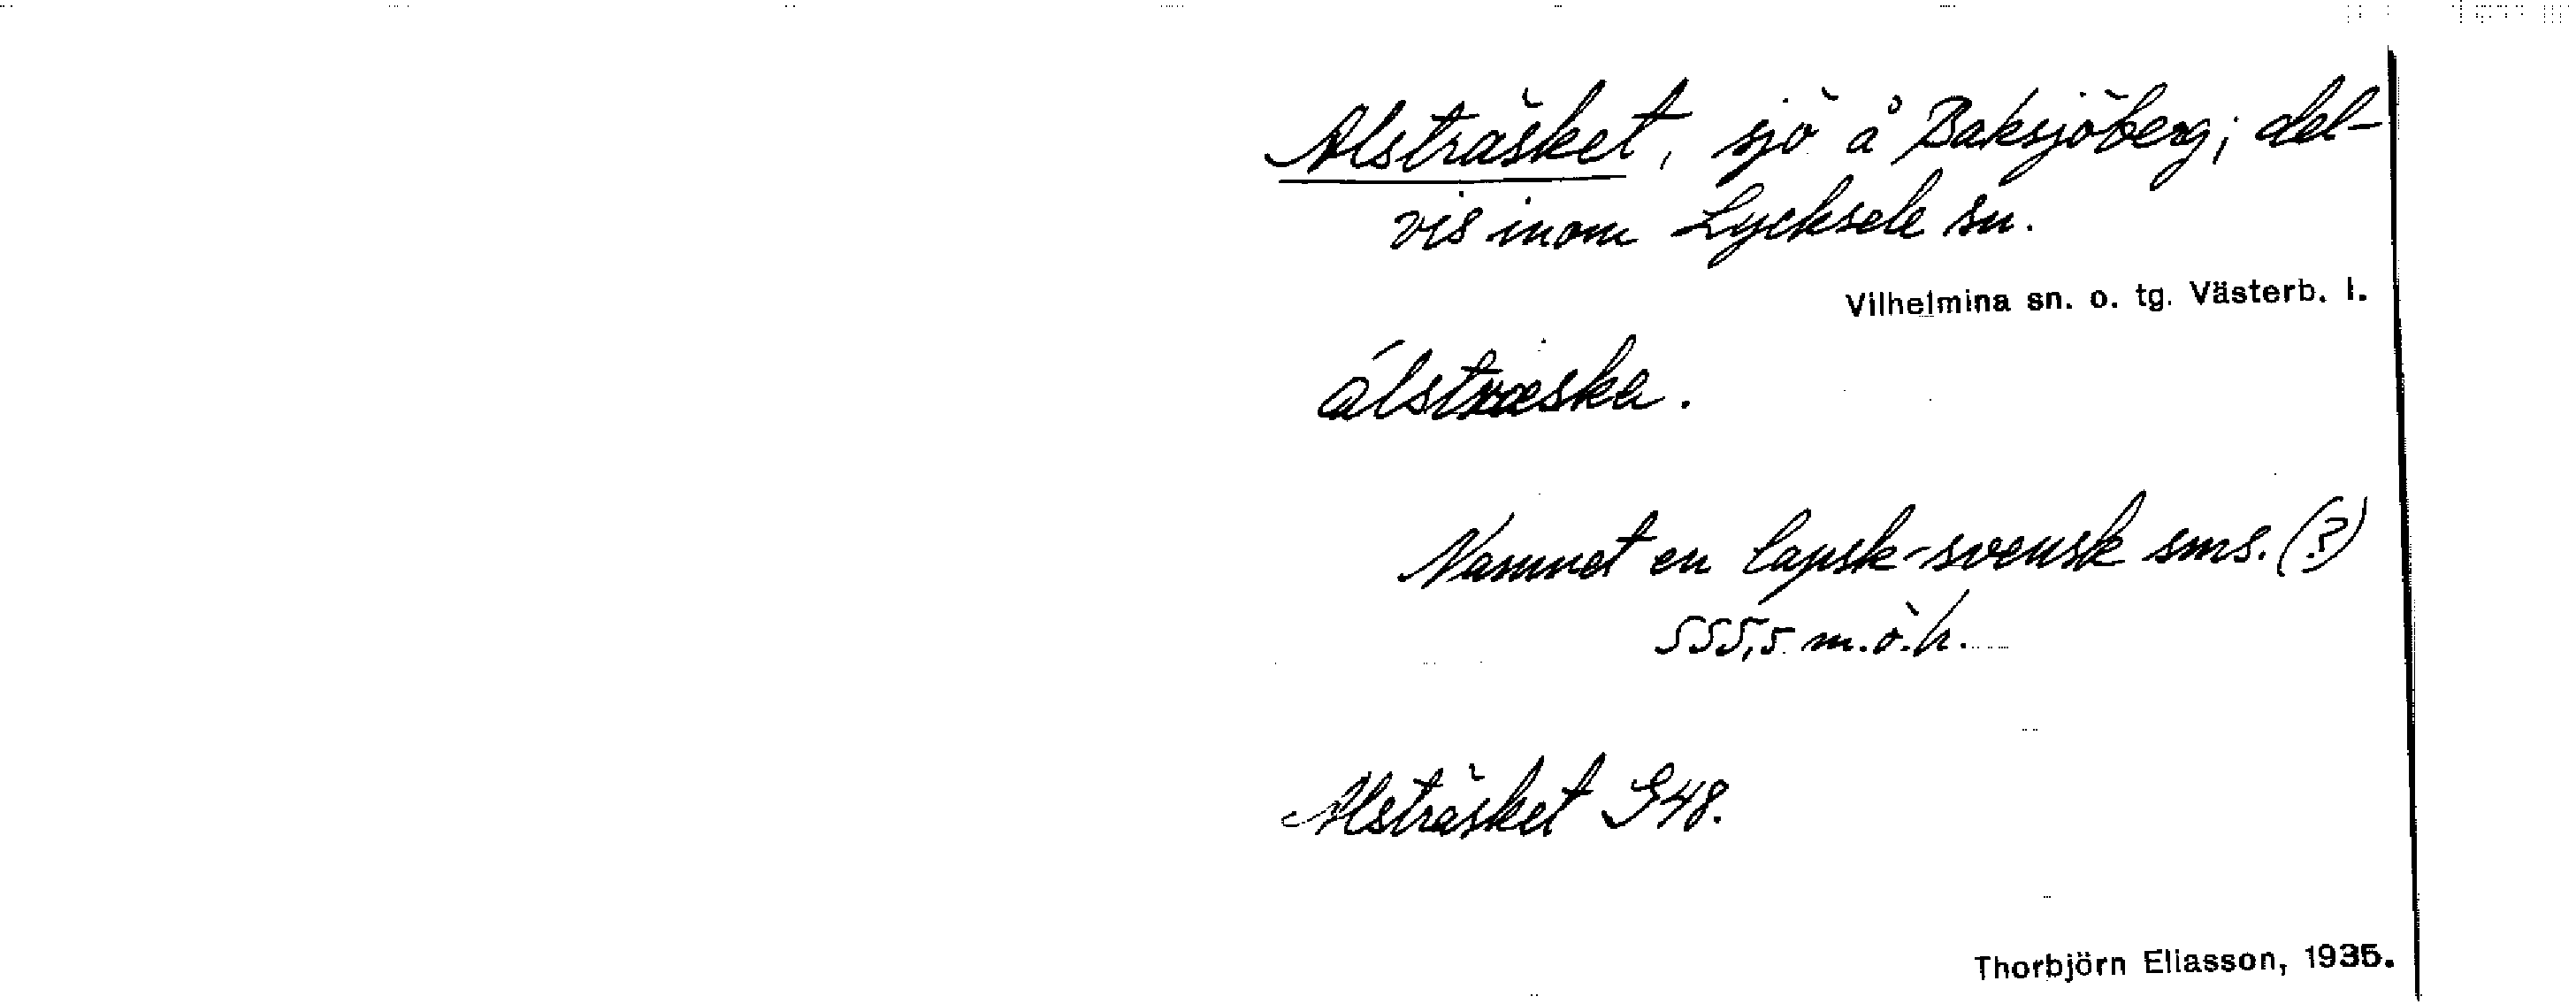 Alsträsket, sjö å Baksjöberg; del-
vis inom Lycksele sn.
Vilhelmina sn. o. tg. Västerb. l.
álstræska.
Namnet en lapsk-svensk sms. (?)
555,5 m.ö.h.
Alsträsket G48.
Thorbjörn Eliasson, 1935.